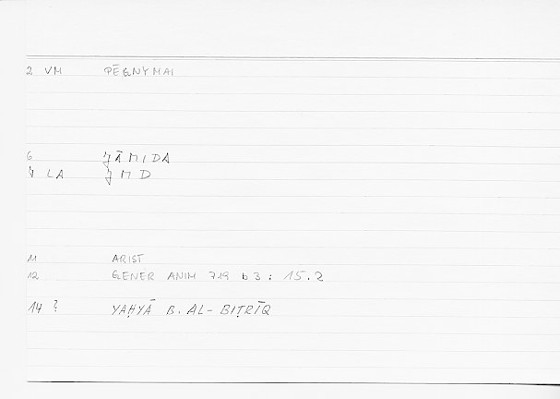 2 VM PĒGNYMAI
6 ǦĀMIDA
LA ǦMD
11 ARIST
12 GENER ANIM 729 b 3 : 15.2
14 ? YAḤYĀ B. AL-BIṬRĪQ